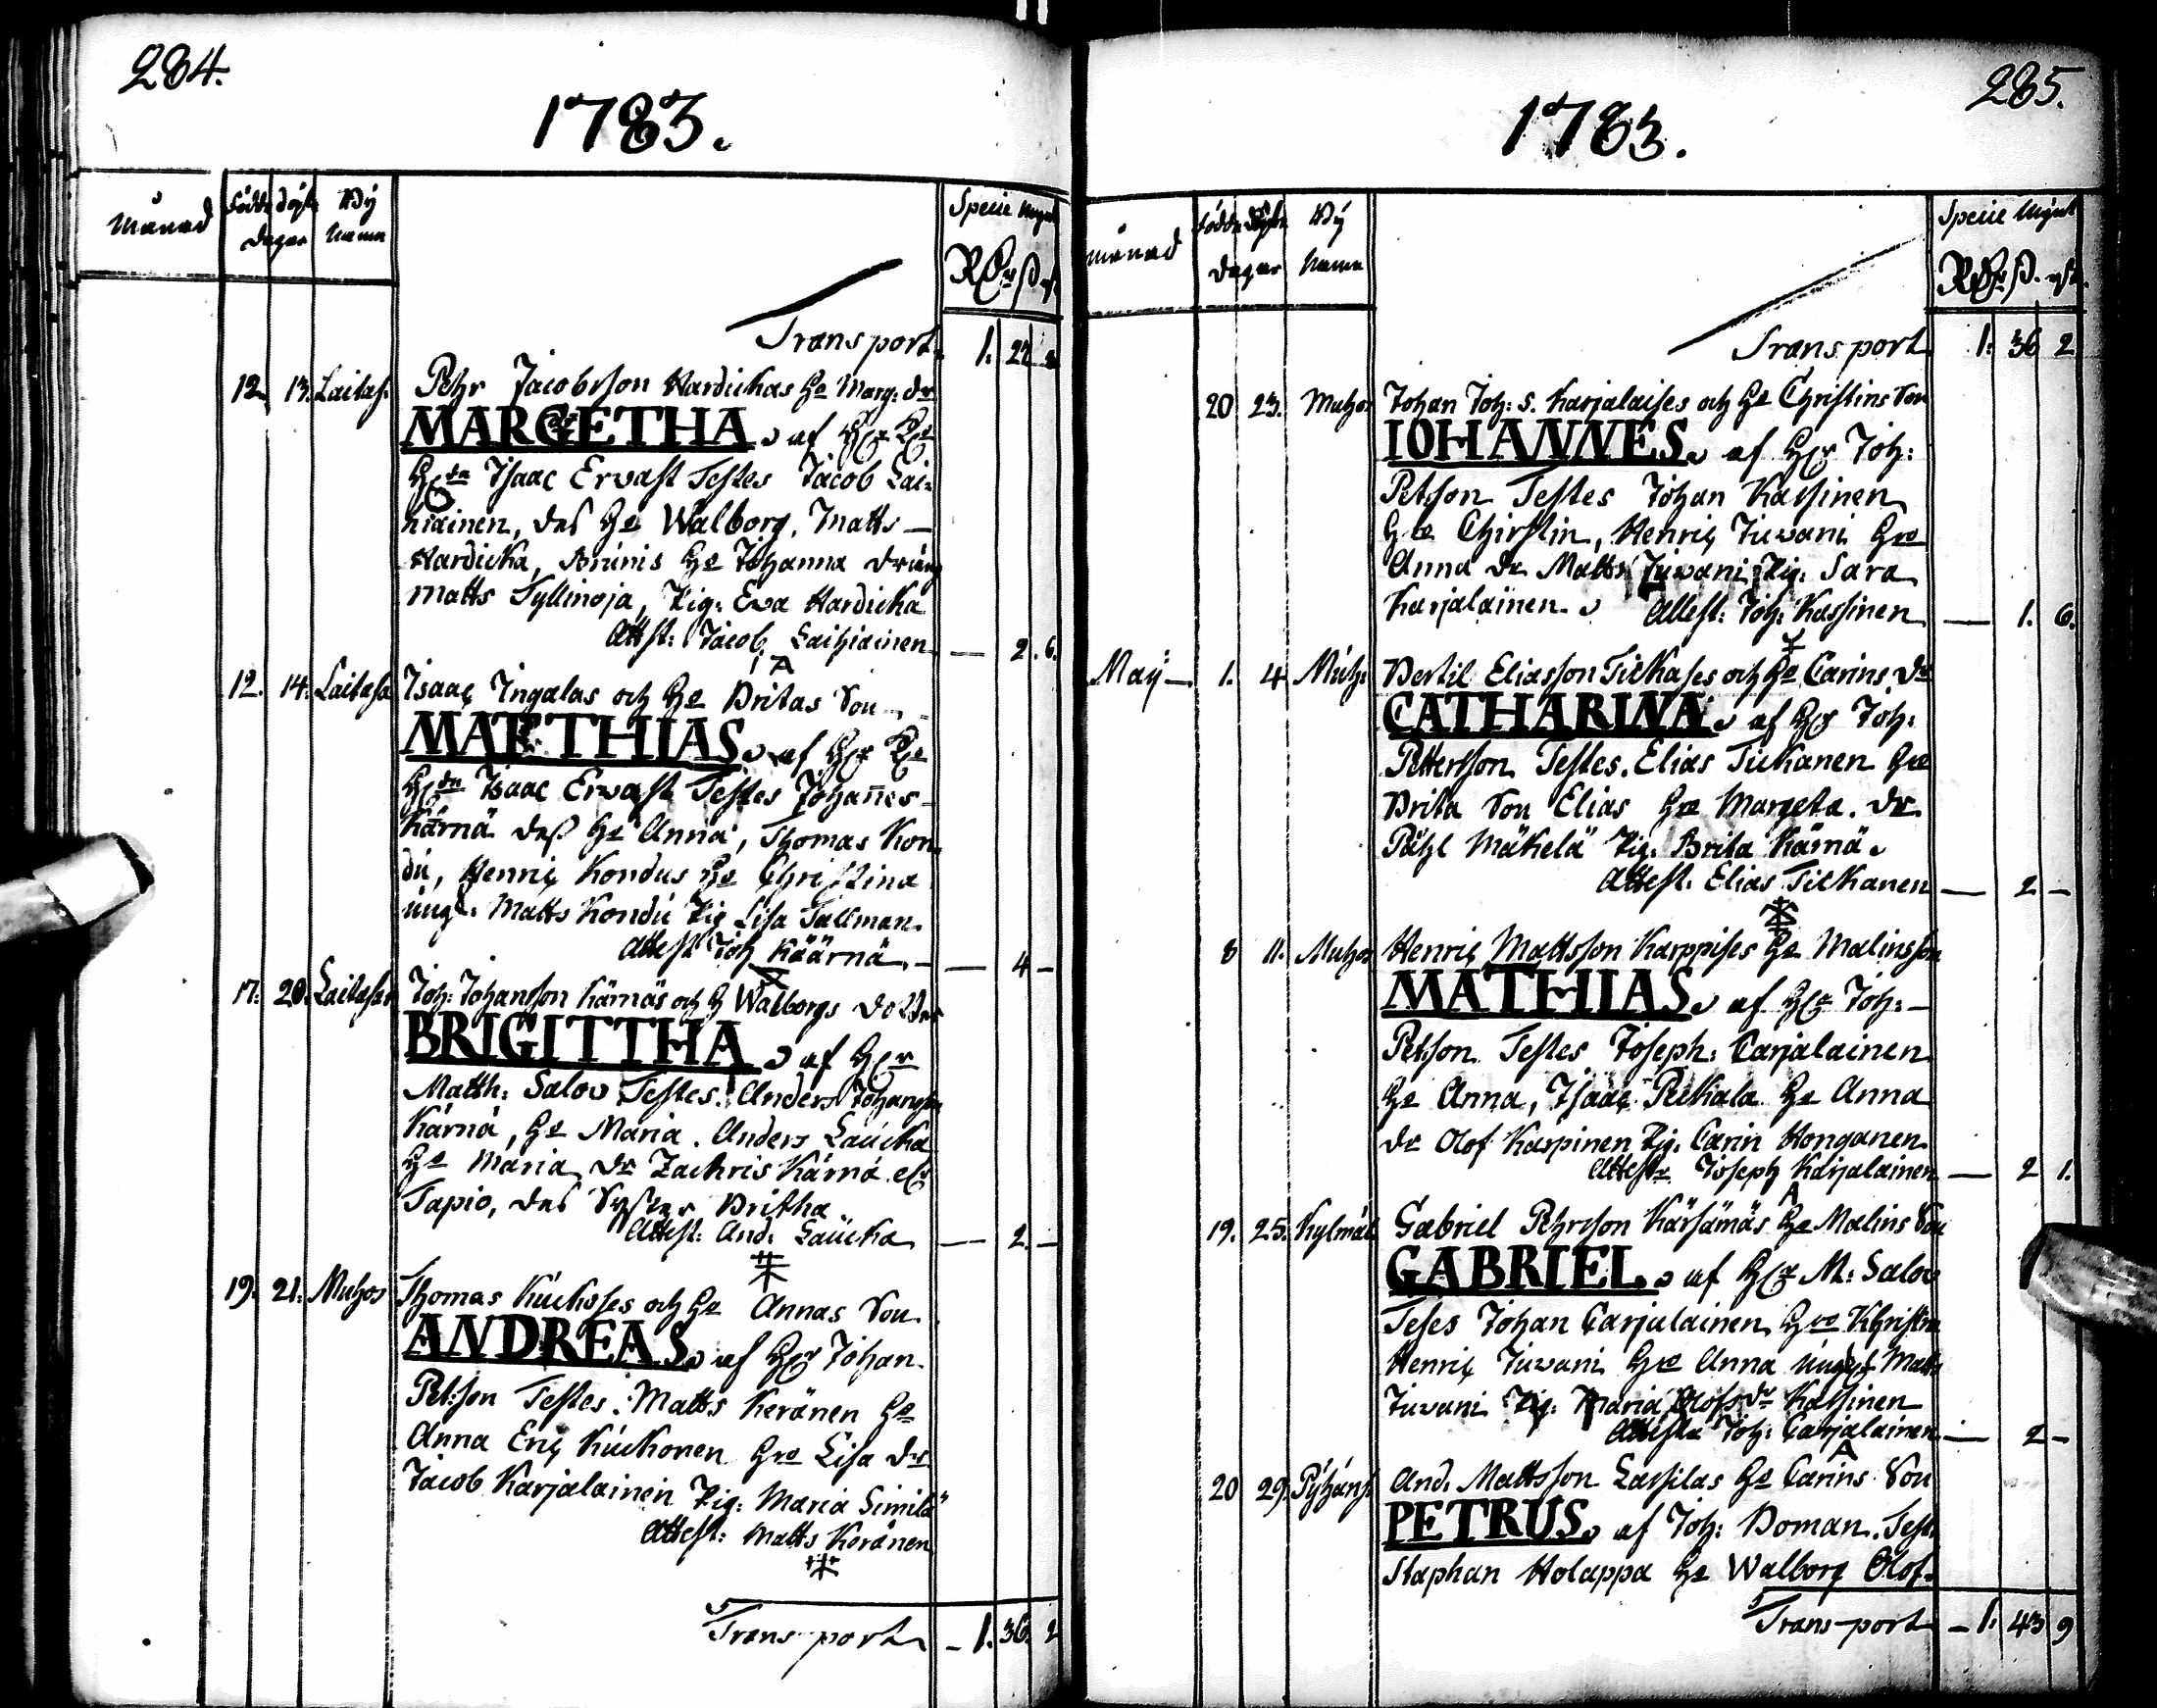 284.
1783.
Månad Födde döpte By Specie Mynt
dagar Namn R:dr ß. rst.
Transport. 1. 22
12. 13. Laitas. Pehr Jacobsson Hardickas He Marg: dr
MARGETHA af
Isaac Ervast Testes Jacob Lai-
hiainen, des He Walborg. Matts
Hardicka, Brunis He Johanna dräng
Matts Tyllinoja, Pig: Eva Hardicka
Attst: Jacob Laihiainen — 2. 6.
12. 14. Laitasa Isaac Ingalas och He Britas Son
MATTHIAS af
Isaac Ervast Testes Johannes
Kärnä deß He Anna, Thomas Kon-
du, Henric Kondus He Christina
ung d. Matts Kondu Pig Lisa Tallman.
Attest Joh Käärnä — 4 —
17. 20. Laitasar Joh: Johansson Kärnäs och H Walborgs dotter
BRIGITTHA af
Matth: Salov Testes. Anders Johansson
Kärnä, He Maria. Anders Laucka
He Maria dr Zachris Kärnä
Tapio, des Syster Britha
Attest: And: Laucka — 2. —
19. 21. Muhos Thomas Kuckoses och He Annas Son
ANDREAS af Johan
Pet:son Testes. Matts Keränen He
Anna Eric Kuckonen Hro Lisa dr
Jacob Karjalainen Pig: Maria Similä
Attest: Matts Keränen
Transport — 1. 36. 2
285.
1783.
Månad Födde döpte By Specie Mynt
dagar Namn R:dr ß. rst.
Transport 1. 36 2
20 23. Muhos Johan Joh: S. Karjalaises och He Christins Son
IOHANNES af Joh:
Petson Testes Johan Kassinen
Hro Chirstin, Henric Juvani Hro
Anna dr Matts Juvani Pig: Sara
Karjalainen. Attest: Joh: Kassinen — 1. 6.
Maij — 1. 4. Muh: Bertil Eliasson Tickases och He Carins dr
CATHARINA af Joh:
Pettersson Testes. Elias Tickanen Hro
Brita Son Elias Hro Margeta. dr
Påhl Mäkelä Pig. Brita Kärnä
Attest. Elias Tickanen — 2 —
8 11. Muhos Henric Mattsson Karppises He Malins son
MATHIAS af Joh:
Petson Testes Joseph: Carjalainen
He Anna, Isaac Pickala He Anna
dr Olof Karpinen Pig. Carin Honganen
Attestr Joseph Karjalainen — 2 1.
19. 25. Kylmäl Gabriel Pehrsson Kärsämäs He Malins Son
GABRIEL af M: Salov
Teses Johan Carjalainen Hro Khristin
Henric Juvani Hro Anna Matts
Juvani Pig: Maria Olofsdr Kassinen
Attesta Joh: Carjalainen — 2 —
20 29. Pyhäns. And. Mattsson Lassilas He Carins Son
PETRUS af Joh: Boman. Test.
Staphan Holappa He Walborg Olof-
Transport — 1. 43 9